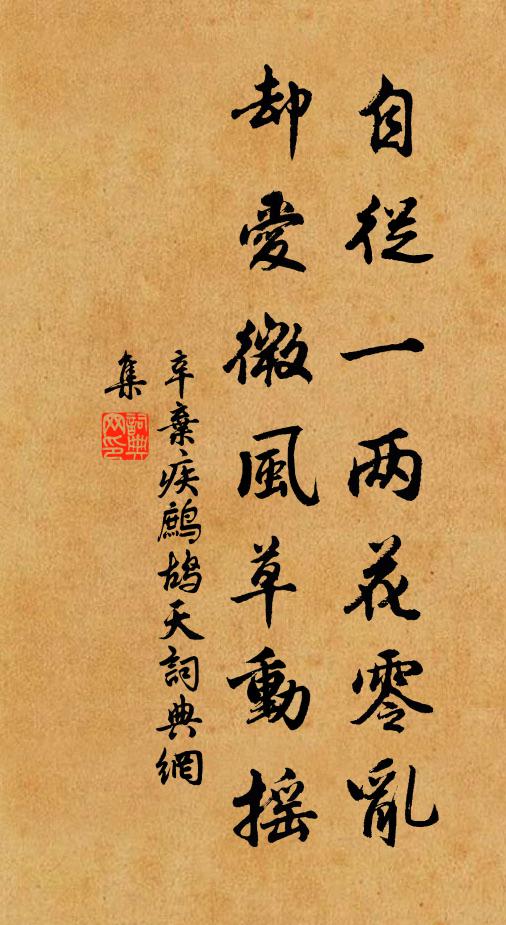 自從一两花零亂
却愛微風草動摇
辛棄疾鷓鴣天詞典網
集
詞典網印